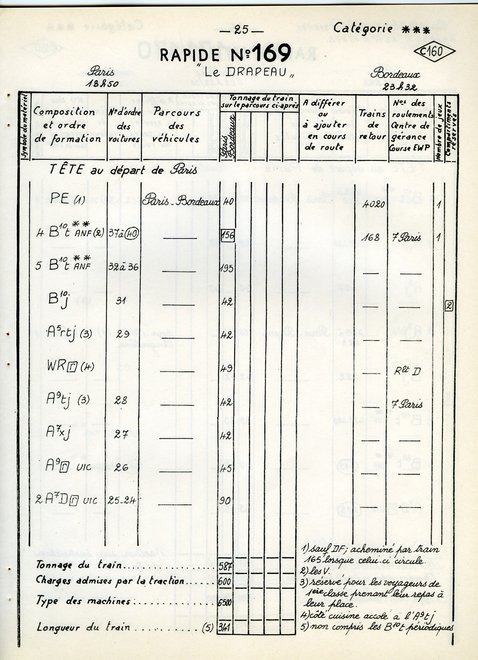 — 25 —
Catégorie ***
RAPIDE Nº 169
C160
"LE DRAPEAU"
Paris
18h50
Bordeaux
23h32
Symbole du matériel
Composition et ordre de formation
Nos d'ordre des voitures
Parcours des véhicules
Tonnage du train sur le parcours ci-après
Paris Bordeaux
A différer ou à ajouter en cours de route
Trains de retour
Nos des roulements Centre de gérance Course EWP
Nombre de jeux
Compartiments réservés
TÊTE au départ de Paris
PE (1) Paris-Bordeaux 40 4020 1
4 B10t ** ANF (2) 37à(40) —— 156 168 7 Paris 1
5 B10t ** ANF 32à36 —— 195 — —
B10j 31 —— 42 — — 2
A5rtj (3) 29 —— 42 — —
WR r (4) —— 49 — Rlt D
A9tj (3) 28 —— 42 — 7 Paris
A7xj 27 —— 42 — —
A9 r UIC 26 —— 45 — —
2 A7D r UIC 25-24 —— 90 — —
Tonnage du train 587
Charges admises par la traction 600
Type des machines 6500
Longueur du train (5) 341
1) sauf DF; acheminé par train
165 lorsque celui ci circule.
2) les V.
3) réservé pour les voyageurs de
1ère classe prenant leur repas à
leur place.
4) côté cuisine accolé à l'A9tj
5) non compris les B10t périodiques